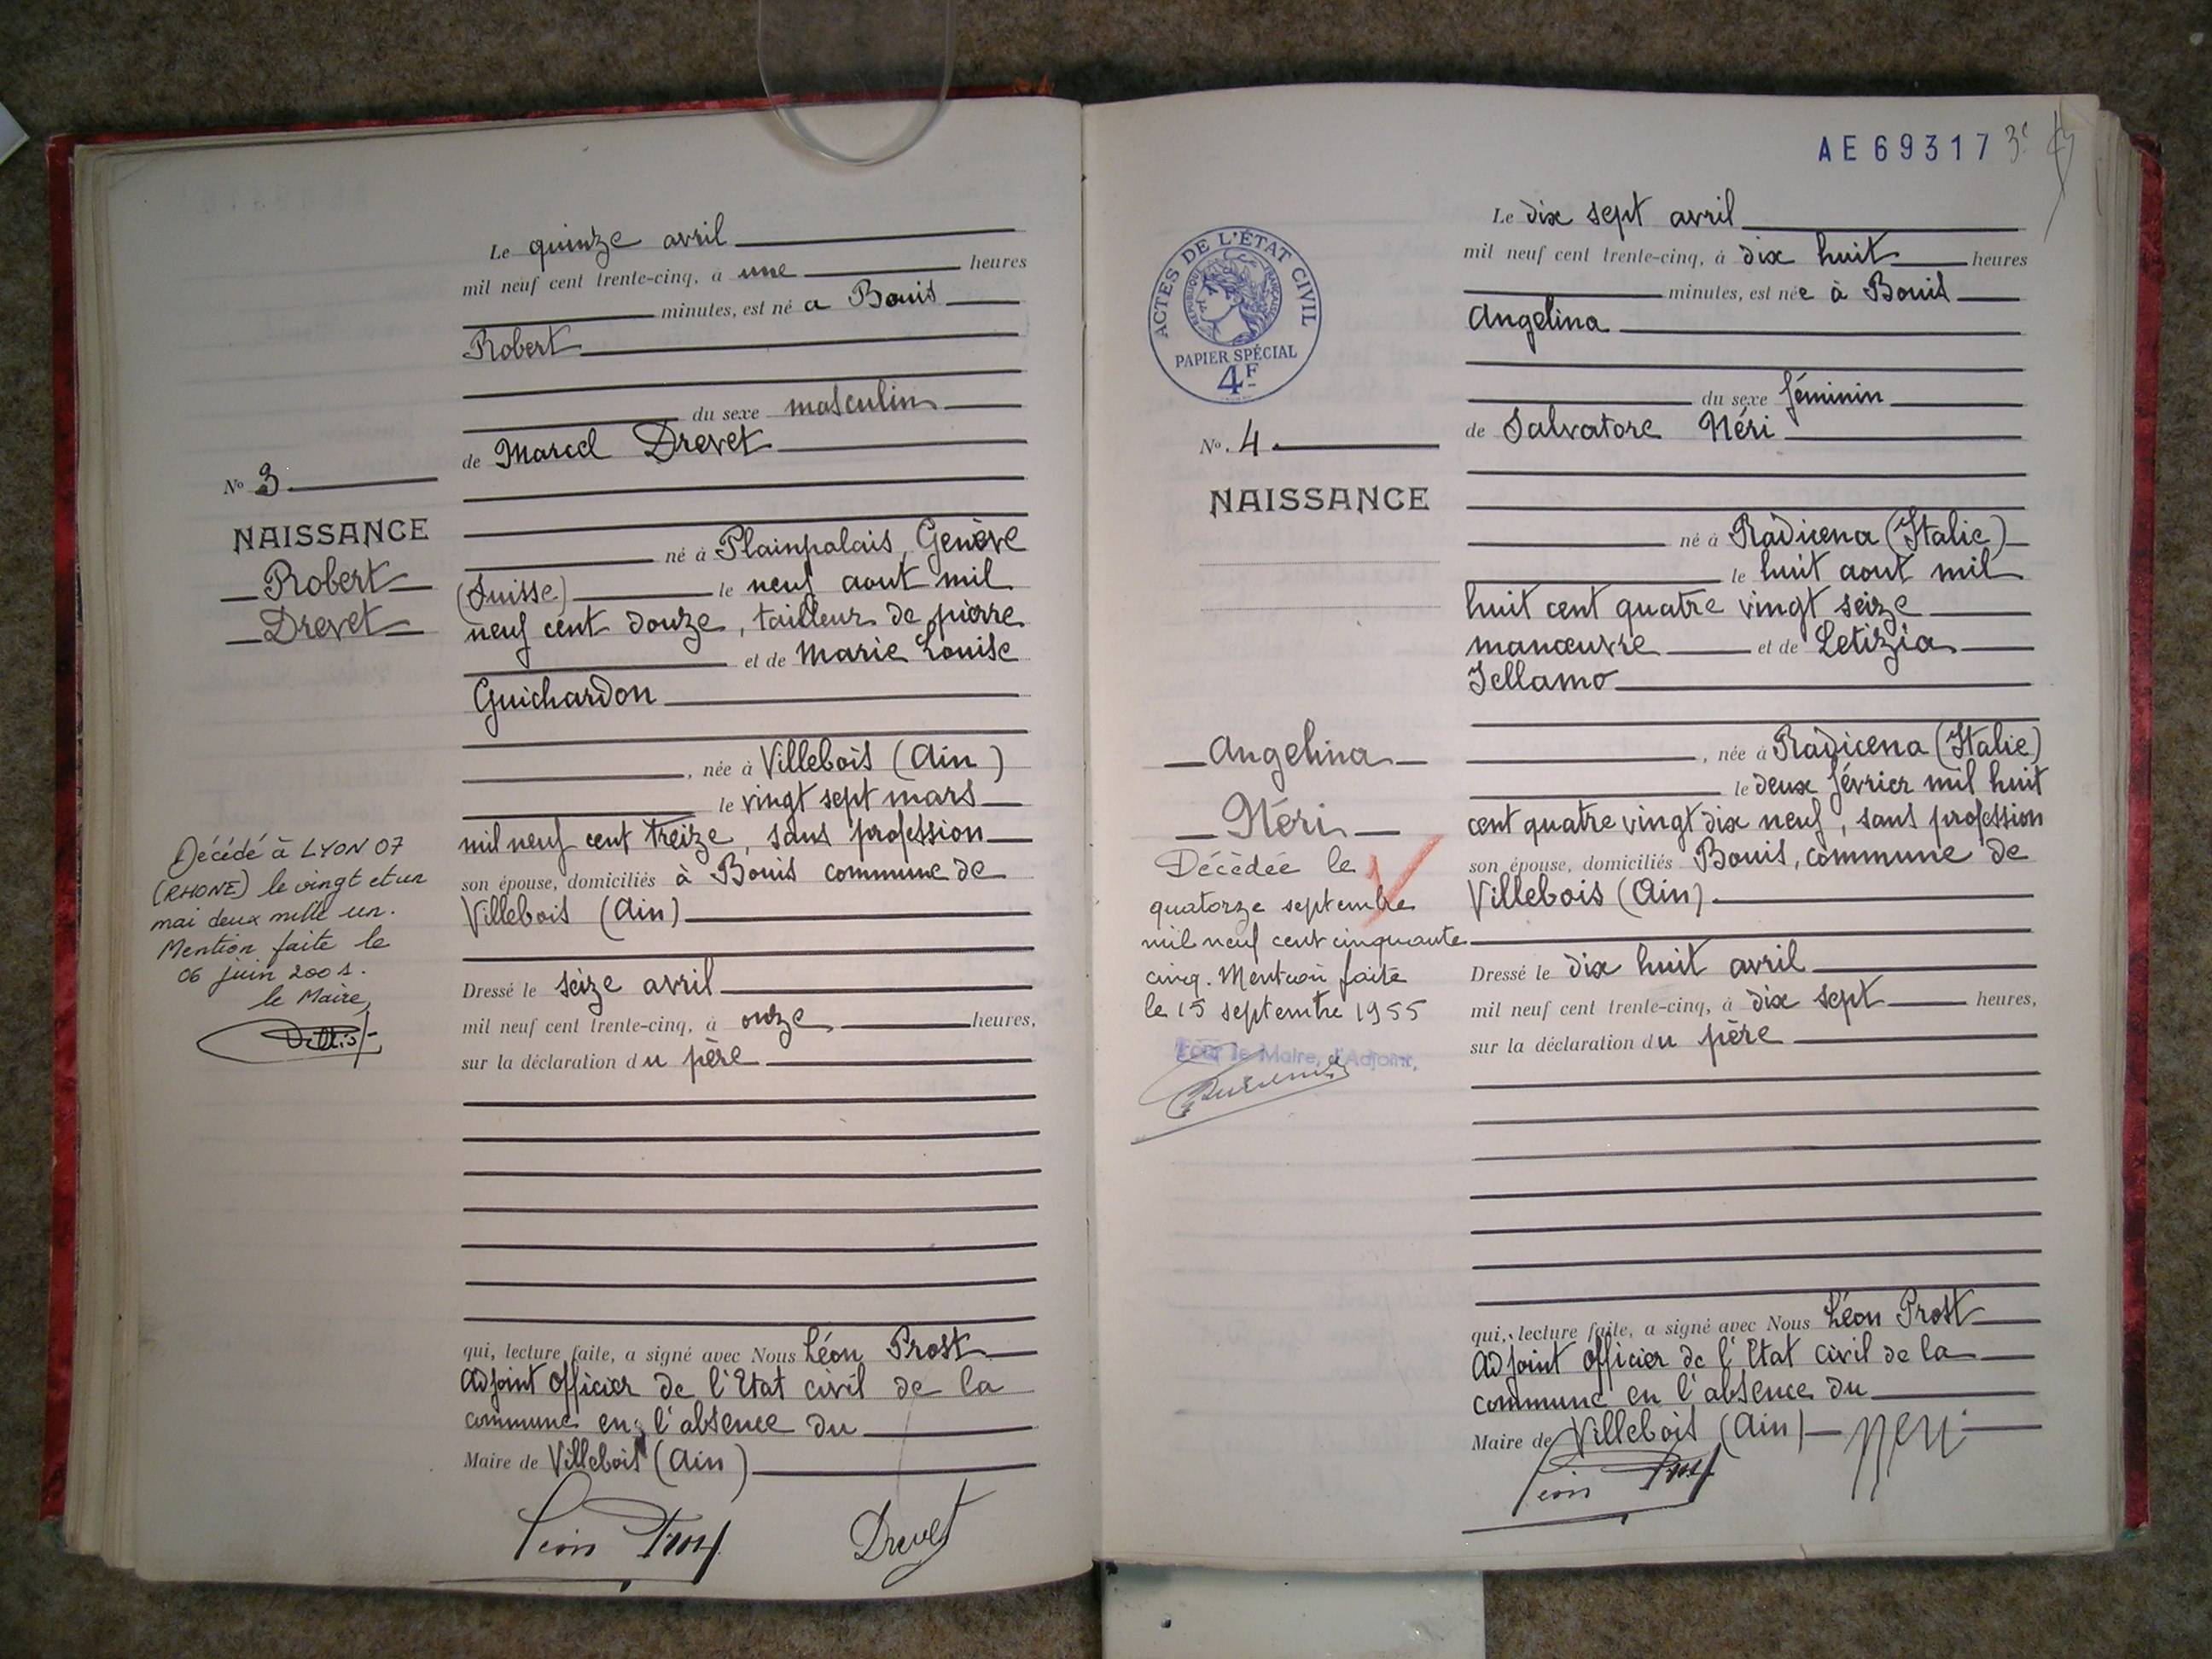 Le quinze avril
mil neuf cent trente-cinq, à une heures
minutes, est né a Bouis
Robert
du sexe masculin
de Marcel Drevet
No 3.
NAISSANCE
Robert
Drevet
né à Plainpalais, Genève
(Suisse) le neuf aout mil
neuf cent douze, tailleur de pierre
et de Marie Louise
Guichardon
, née à Villebois (Ain)
le vingt sept mars
mil neuf cent treize, sans profession
son épouse, domiciliés à Bouis commune de
Villebois (Ain)
Décédé à LYON 07
(RHONE) le vingt et un
mai deux mille un.
Mention faite le
06 juin 2001.
le Maire,
Dressé le seize avril
mil neuf cent trente-cinq, à onze heures,
sur la déclaration du père
qui, lecture faite, a signé avec Nous Léon Prost
Adjoint Officier de l'Etat civil de la
commune en l'absence du
Maire de Villebois (Ain)
Léon Prost Drevet
AE69317
ACTES DE L'ÉTAT CIVIL
RÉPUBLIQUE FRANÇAISE
PAPIER SPÉCIAL
4F
Le dix sept avril
mil neuf cent trente-cinq, à dix huit heures
minutes, est née à Bouis
Angelina
du sexe féminin
de Salvatore Néri
No. 4.
NAISSANCE
Angelina
Néri
né à Radicena (Italie)
le huit aout mil
huit cent quatre vingt seize
manœuvre et de Letizia
Jellamo
, née à Radicena (Italie)
le deux février mil huit
cent quatre vingt dix neuf, sans profession
son épouse, domiciliés Bouis, commune de
Villebois (Ain).
Décèdée le
quatorze septembre
mil neuf cent cinquante
cinq. Mention faite
le 15 septembre 1955
Pour le Maire, l'Adjoint,
Dressé le dix huit avril
mil neuf cent trente-cinq, à dix sept heures,
sur la déclaration du père
qui, lecture faite, a signé avec Nous Léon Prost
Adjoint Officier de l'Etat civil de la
commune en l'absence du
Maire de Villebois (Ain) Neri
Léon Prost